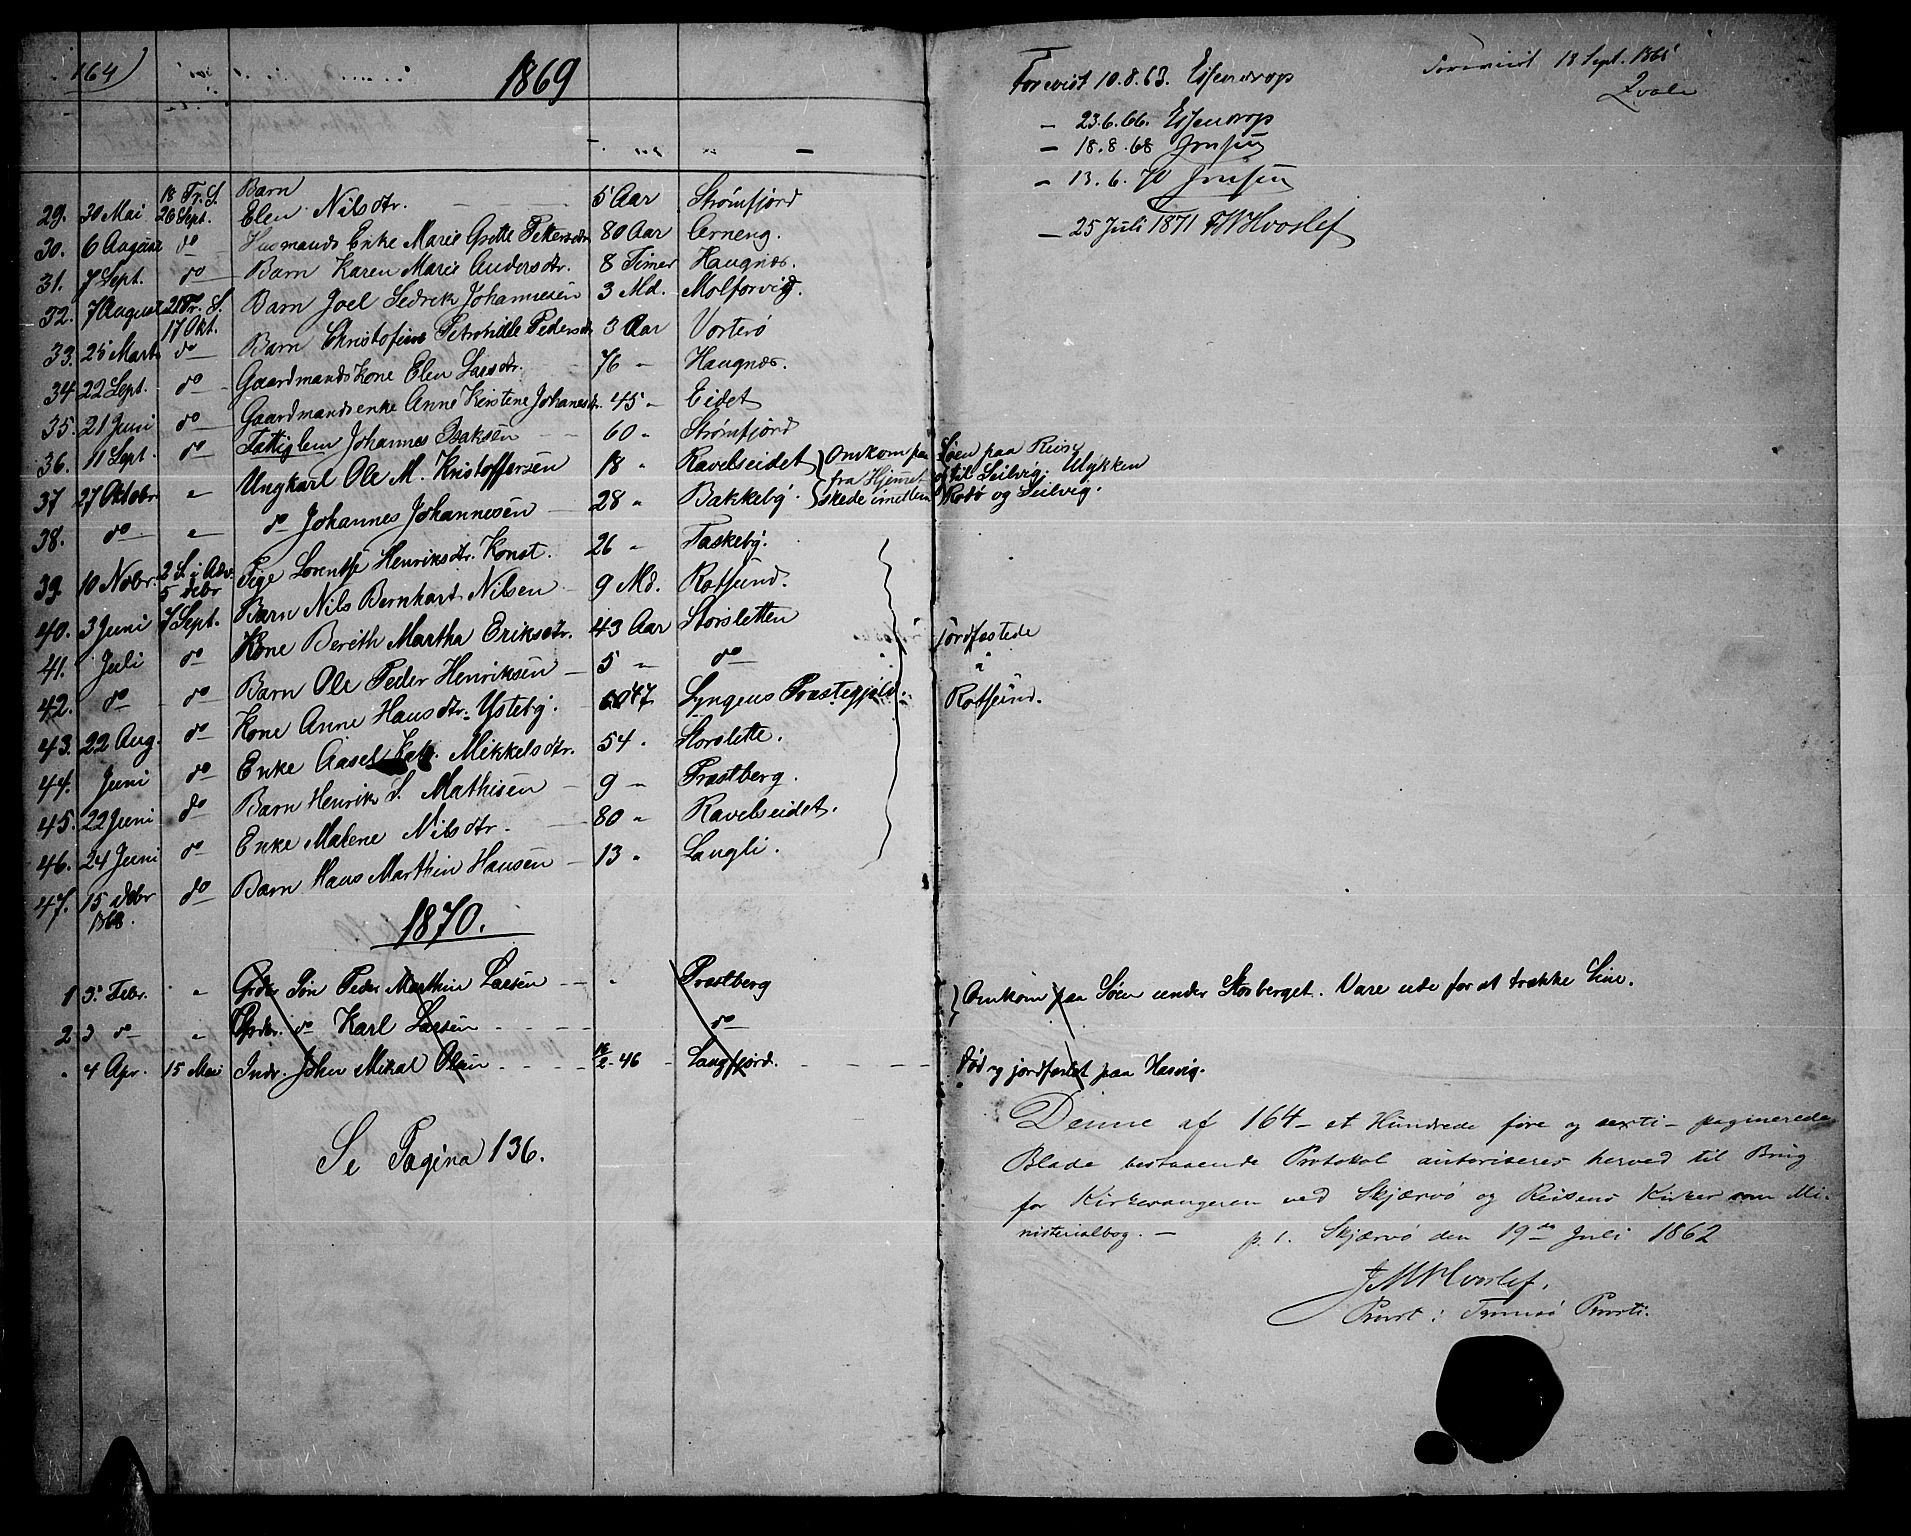 164)
1869
29. 30 Mai 18 Tr. S. 26 Sept. Barn Elen Nilsdtr. 5 Aar Strømfjord
30. 6 August do Husmands Enke Marie Grethe Pettersdtr. 80 Aar Arneng.
31. 7 Sept. do Barn Karen Marie Andersdtr. 8 Timer Haugnæs.
32. 7 August 21 Tr. S. 17 Okt. Barn Joel Sedrik Johannesen 3 Md. Molforvig.
33. 25 Marts do Barn Christofine Petronille Pedersdtr. 3 Aar Vorterø
34 22 Sept. do Gaardmandskone Elen Larsdtr. 76 " Haugnæs.
35. 21 Juni do Gaardmandsenke Anne Kirstine Johanesdtr. 45 " Eidet
36. 11 Sept. do Fattiglem Johannes Isaksen 60 " Strømfjord
37 27 Oktober " Ungkarl Ole M. Kristoffersen 18 " Ravelseidet } Omkom paa Søen paa Reise
fra Hjemet til Leilvig. Ulykken
38. do " do Johannes Johannesen 28 " Bakkeby. skede imellem Rodø og Leilvig.
39. 10 Novbr. 2 S. i Adv. 5 Debr Pige Lorentse Henriksdtr. Konst. 26 " Taskeby.
40. 3 Juni 7 Sept. Barn Nils Bernhart Nilsen 9 Md. Rotsund.
41. Juli do Kone Berith Martha Eriksdtr. 43 Aar Storsletten
42. do do Barn Ole Peder Henriksen 5 " do
43. 22 Aug. do Kone Anne Hansdtr. Ysteby. 47 Lyngens Præstegjeld.
44. Juni do Enke Aasel Kath. Mikkelsdtr. 54 " Storslette.
45. 22 Juni do Barn Henrik S. Mathisen 9 " Præstberg.
46. 24 Juni do Enke Malene Nilsdtr. 80 " Ravelseidet.
47. 15 Debr 1868. do Barn Hans Marthin Hansen 13 " Langli.
jordfæstede
i
Rotsund.
1870.
1 3. Febr. " Grdbr. Søn Peder Marthin Larsen " Præstberg
2 3 do " Grdbr. do Karl Larsen do
} Omkom paa Søen under Storberget. Vare ude for at trække Line.
" 4 Apr. 15 Mai Indr. John Mikal Olsen 16/2-46 Langfjord. Død og jordfæstet paa Hasvig.
Se Pagina 136.
Forevist 10.8.63. Essendrop
Forevist 18 Sept. 1865
Qvale
— 23.6.66. Essendrop
— 18.8.68 Jensen
— 13.6.70 Jensen
— 25 Juli 1871 FWHvoslef
Denne af 164 – et Hundrede fire og sexti – paginerede
Blade bestaaende Protokol autoriseres herved til Brug
for Kirkesangeren ved Skjærvø og Reisens Kirker som Mi-
nisterialbog. —
p. t. Skjærvø den 19de Juli 1862
Hvoslef.
Provst i Tromsø Provsti.